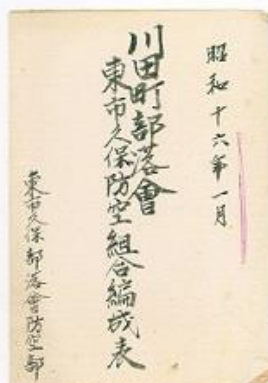 昭和十六年一月
川田町部落會
東市久保防空組合編成表
東市久保部落會防空部